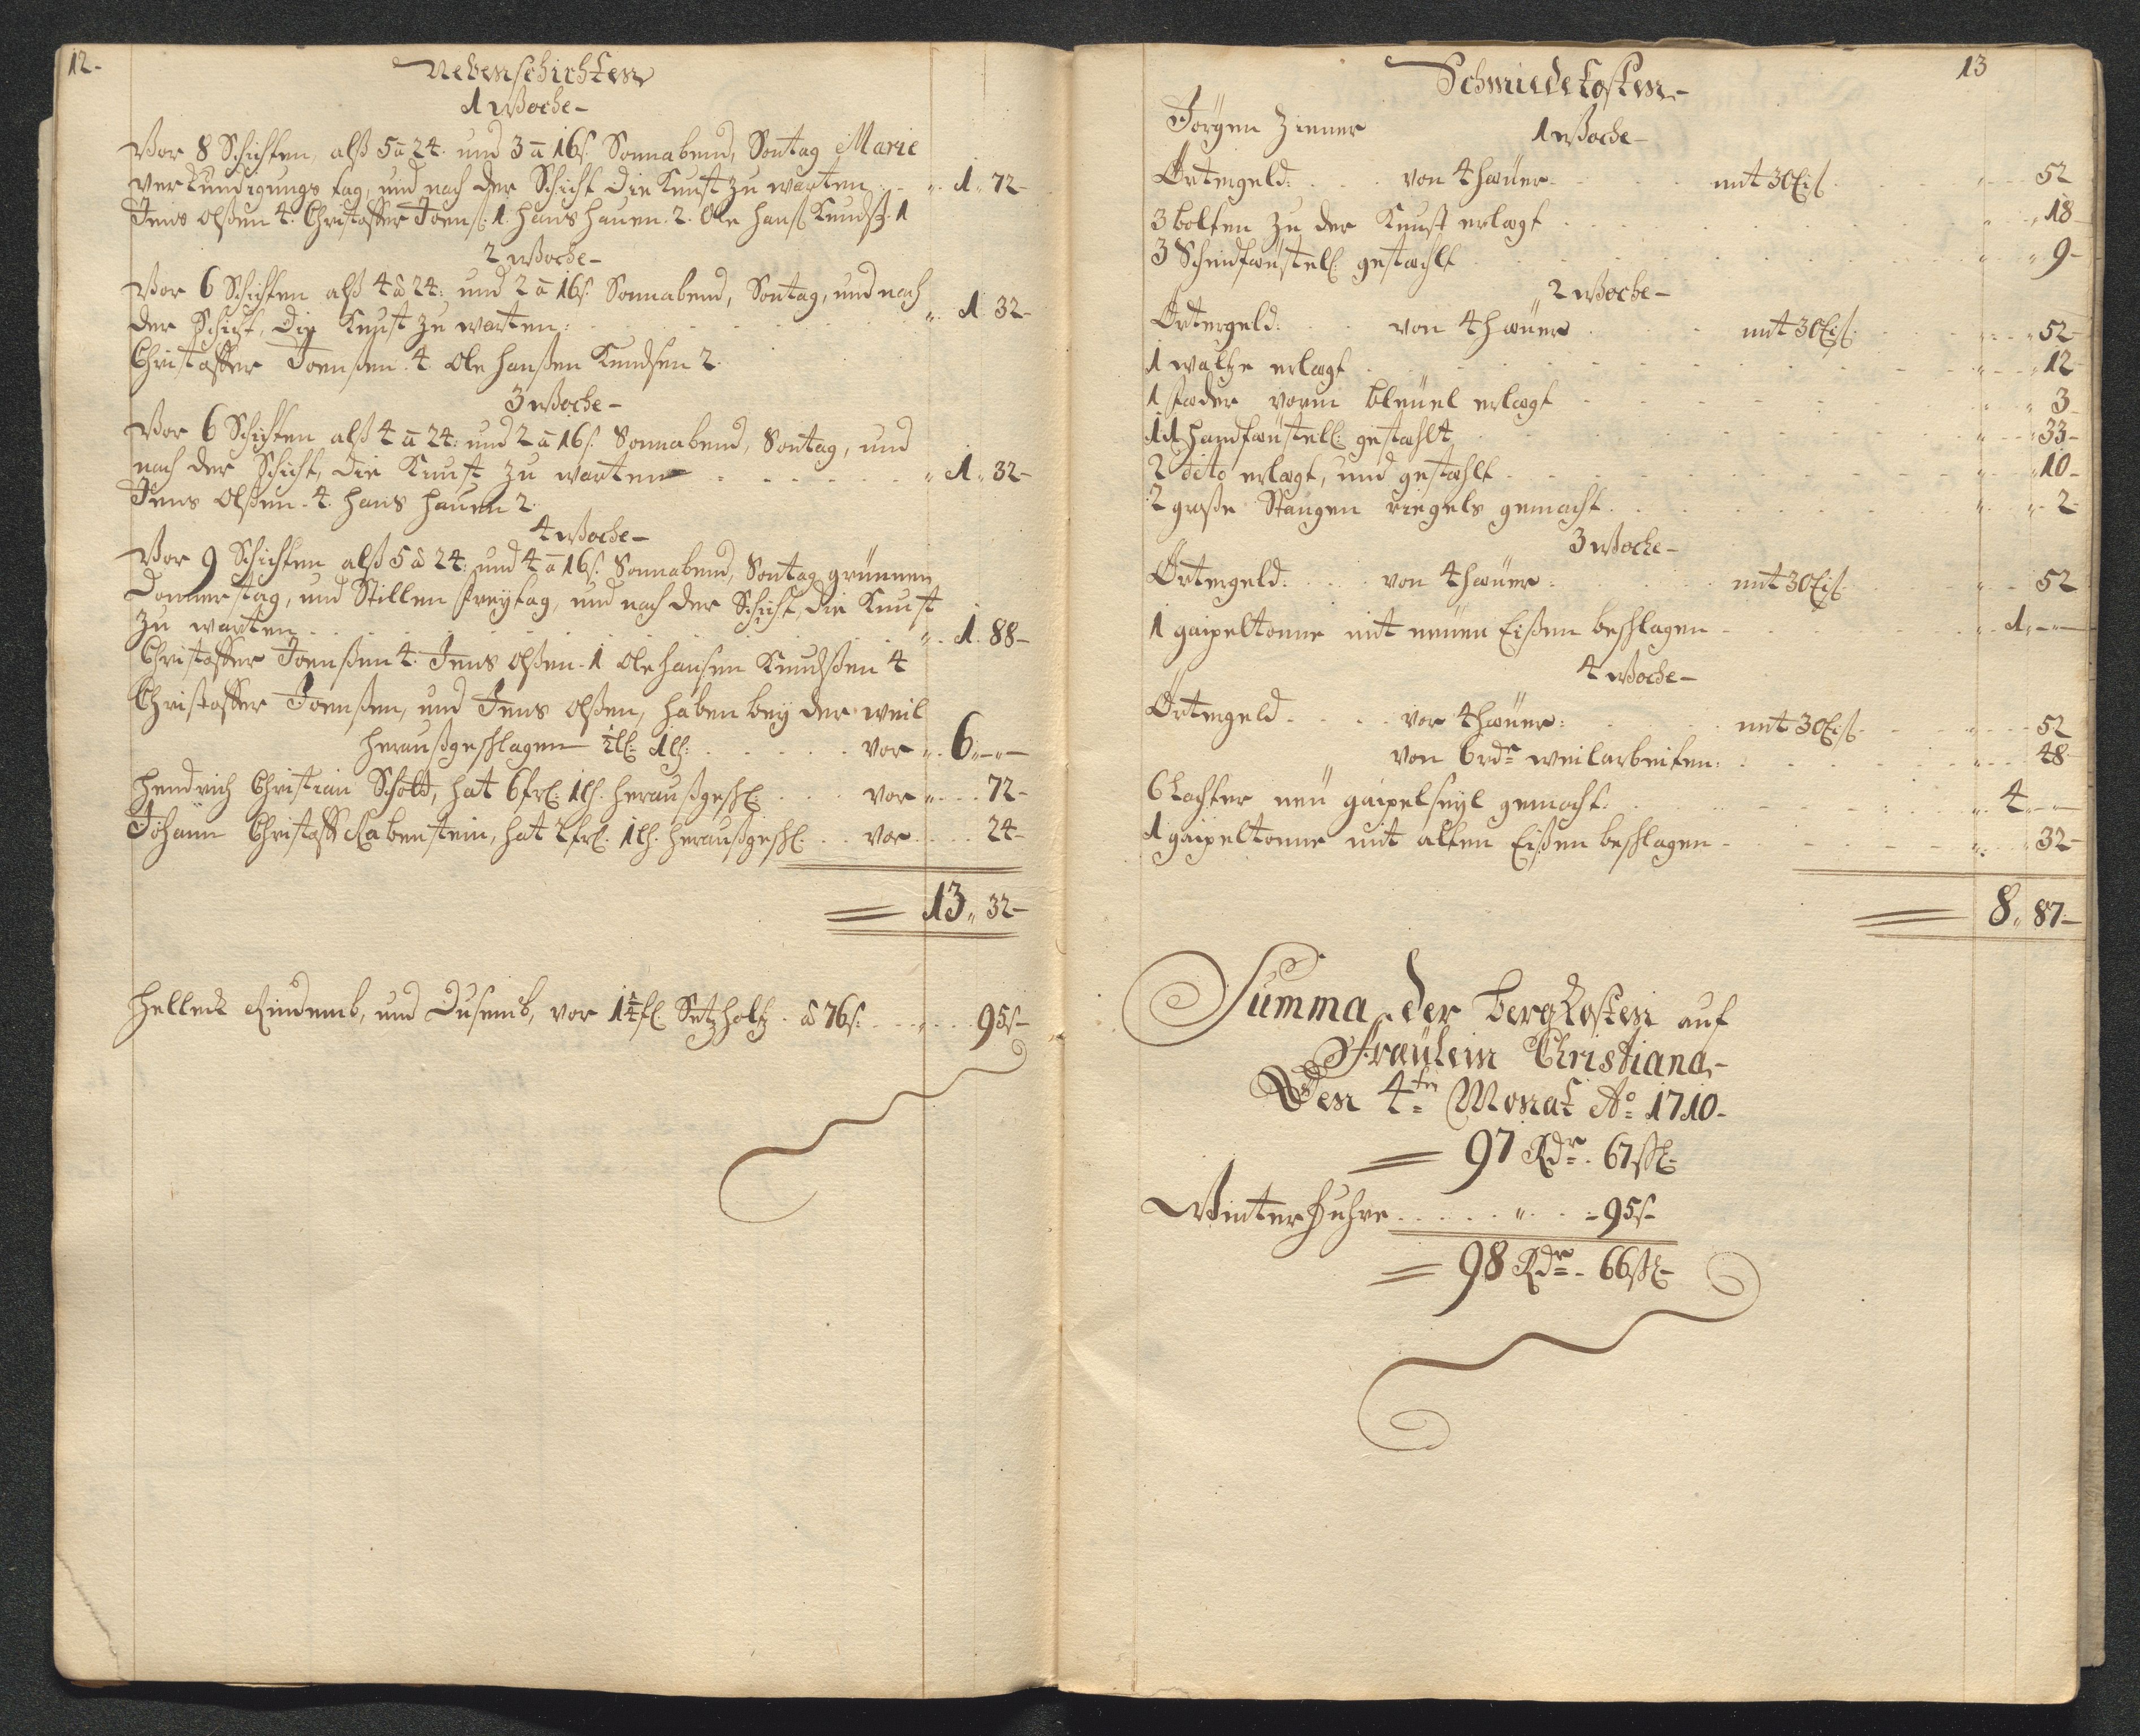 12-
Nebenschichten
1 Woche-
Vor 8 Schichten, alß 5 a 24. und 3 a 16 s. Sonnabend, Sontag Marie
verkündigungs tag, und nach der Schicht die Kunst zu warten . . 1. 72-
Jens Olßen 4. Christoffer Joenß. 1. Hans Hauen. 2. Ole Hanß Knudß. 1
2 Woche-
Vor 6 Schichten alß 4 a 24: und 2 a 16 s. Sonnabend, Sontag, und nach
der Schicht, die Kunst zu warten: . . . 1. 32-
Christoffer Joenßen. 4 Ole Hanßen Knudsen 2.
3 Woche-
Vor 6 Schichten alß 4 a 24: und 2 a 16 s. Sonnabend, Sontag, und
nach der Schicht, die Kunst zu warten . . . 1. 32-
Jens Olßen. 4. Hans Hauen 2.
4 Woche-
Vor 9 Schichten alß 5 a 24: und 4 a 16 s. Sonnabend, Sontag grünnen
Donnerstag, und Stillen Freytag, und nach der Schicht, die Kunst
zu warten . . . 1. 88-
Christoffer Joenßen 4. Jens Olßen. 1 Ole Hansen Knudßen 4
Christoffer Joenßen, und Jens Olßen, haben bey der weil
heraußgeschlagen . . . vor . 6.--
Hendrich Christian Schott, hat 6 frl: 1 lh. heraußgeschl: . . . vor . . 72-
Johann Christoff Rabenstein, hat 2 frl. 1 lh. heraußgeschl. . . vor . . 24-
= 13. 32-
Helleck Rindemb, und Dusemb, vor 1¼ fl. Setzholtz. a 76 s. . . . 95 s-
13
Schmiedekosten-
Jörgen Zinner 1 Woche-
Örtergeld: . . . von 4 häuer . . . mit 30 Eiß. . . . 52
3 bolten zu der Kunst erlagt . . . 18-
3 Scheidfäustell gestählt . . . 9-
2 Woche-
Örtergeld: . . . von 4 häuer . . . mit 30 Eiß. . . . 52-
1 waltze erlagt . . . 12-
1 feder vorm bleüel erlagt . . . 3-
11 handfäustell: gestählt . . . 33-
2 dito erlagt, und gestählt . . . 10-
2 große Stangen riegels gemacht . . . 2-
3 Woche-
Örtergeld: . . . von 4 häuer: . . . mit 30 Eiß. . . . 52
1 gaipeltonne mit neüen Eißen beschlagen . . . 1.--
4 Woche-
Örtergeld . . . vor 4 häuer: . . . mit 30 Eiß. . . . 52
" von 6 rdr weilarbeiten: . . . 48-
6 Lachter neü gaipelseyl gemacht: . . . 4.--
1 gaipeltonne mit alten Eißen beschlagen . . . 32-
= 8. 87-
Summa der bergkosten auf
Fraülein Christiana-
Den 4ten Monat Ao 1710-
= 97 Rdr. 67 ßl-
Winterfuhre . . . . . 95 s-
= 98 Rdr. 66 ßl-